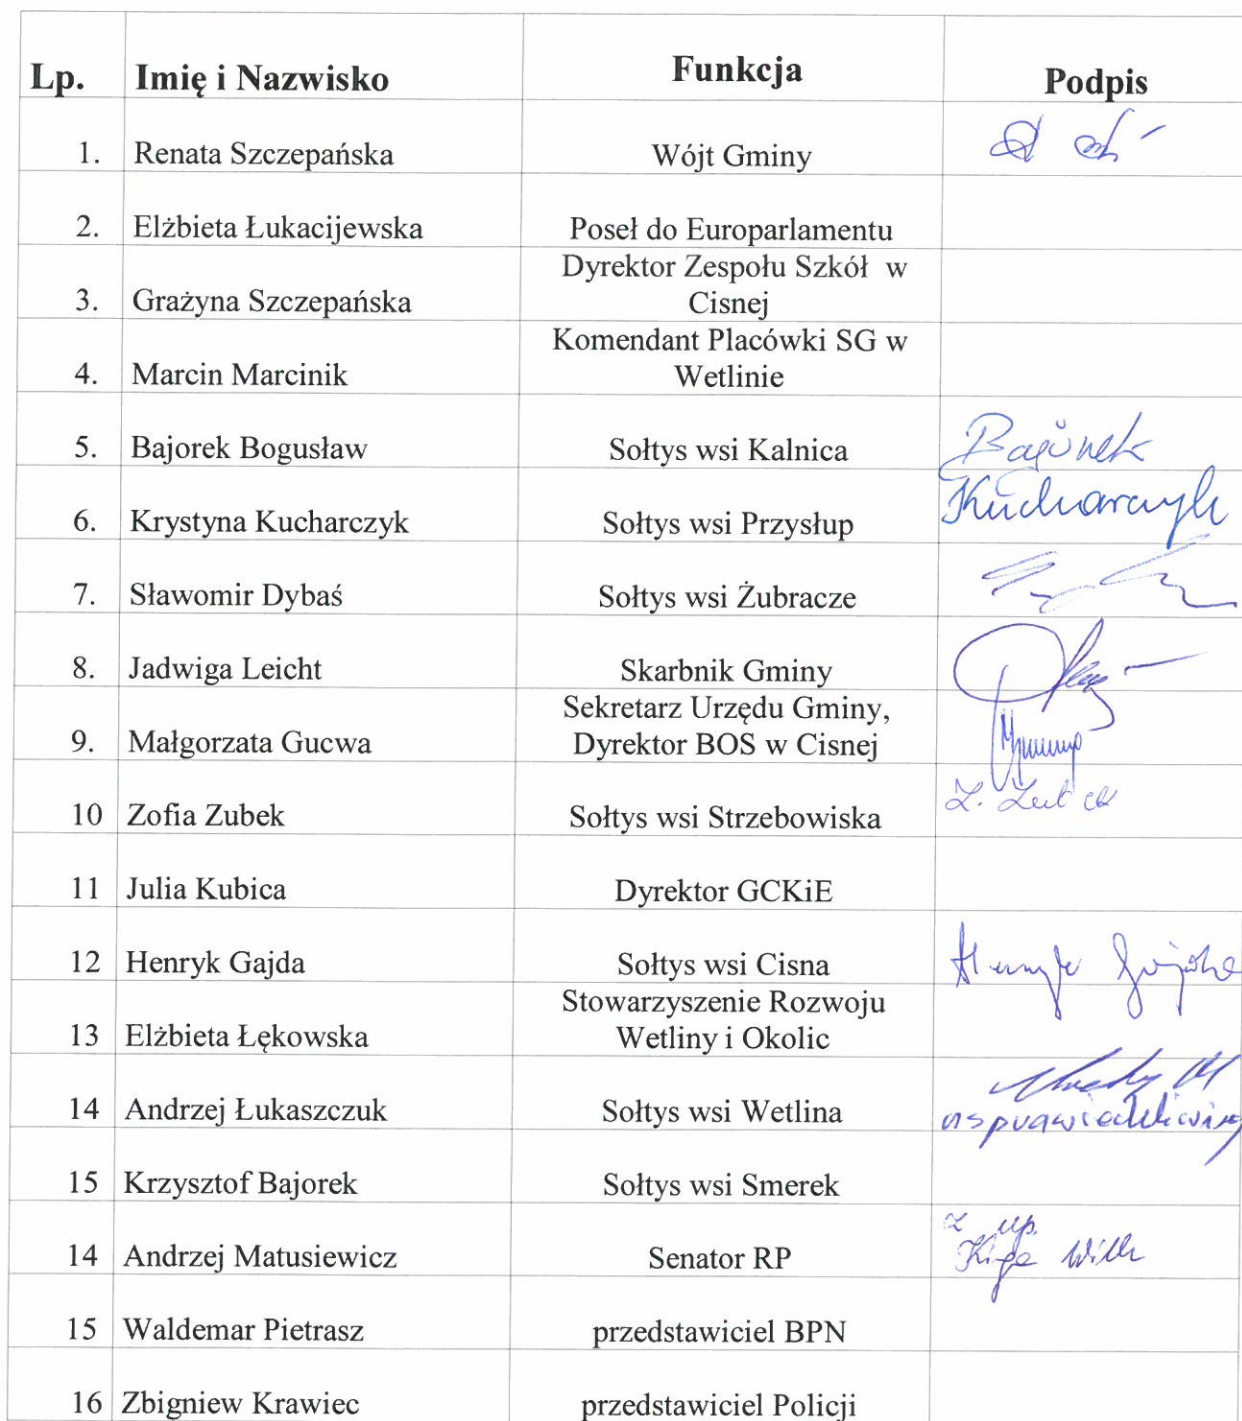 Lp. Imię i Nazwisko Funkcja Podpis
1. Renata Szczepańska Wójt Gminy
2. Elżbieta Łukacijewska Poseł do Europarlamentu
3. Grażyna Szczepańska Dyrektor Zespołu Szkół w
Cisnej
4. Marcin Marcinik Komendant Placówki SG w
Wetlinie
5. Bajorek Bogusław Sołtys wsi Kalnica Bajorek
6. Krystyna Kucharczyk Sołtys wsi Przysłup Kucharczyk
7. Sławomir Dybaś Sołtys wsi Żubracze
8. Jadwiga Leicht Skarbnik Gminy
9. Małgorzata Gucwa Sekretarz Urzędu Gminy,
Dyrektor BOS w Cisnej
10 Zofia Zubek Sołtys wsi Strzebowiska Z. Zubek
11 Julia Kubica Dyrektor GCKiE
12 Henryk Gajda Sołtys wsi Cisna Henryk Gajda
13 Elżbieta Łękowska Stowarzyszenie Rozwoju
Wetliny i Okolic
14 Andrzej Łukaszczuk Sołtys wsi Wetlina
15 Krzysztof Bajorek Sołtys wsi Smerek
14 Andrzej Matusiewicz Senator RP z up.
15 Waldemar Pietrasz przedstawiciel BPN
16 Zbigniew Krawiec przedstawiciel Policji